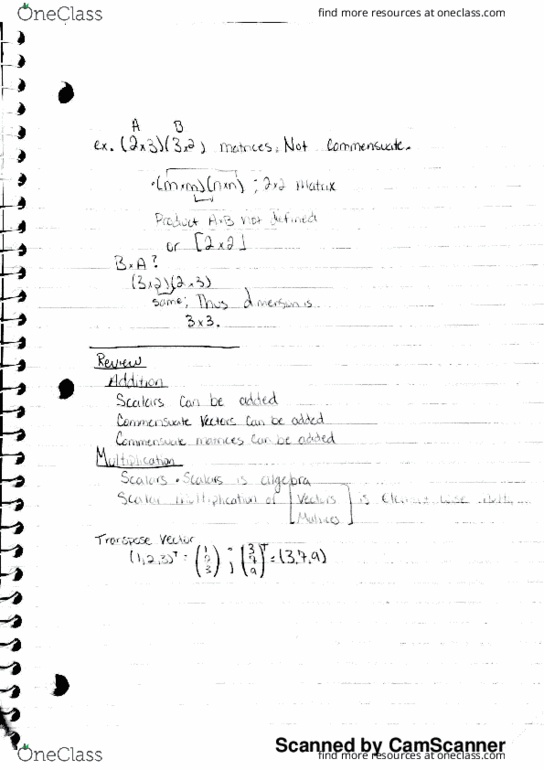 OneClass
find more resources at oneclass.com
A B
ex. (2x3)(3x2) matrices; Not Commensuate.
·(mxm)(nxn) ; 2x2 Matrix
Product AxB not defined
or [2x2]
BxA?
(3x2)(2x3)
same; Thus dimension is
3x3.
Review
Addition
Scalars can be added
Commensuate Vectors can be added
Commensuate matrices can be added
Multiplication
Scalars · Scalars is algebra
Scalar multiplication of [Vectors
Matrices] is Element wise
Transpose Vector
(1,2,3)ᵀ = (1 2 3) ; (3 7 9)ᵀ = (3,7,9)
Scanned by CamScanner
OneClass
find more resources at oneclass.com